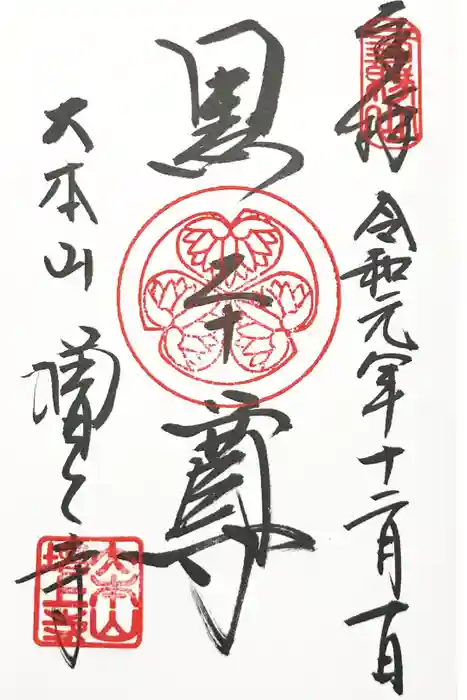 奉拝 令和元年十二月一日
黒本尊
大本山 増上寺
大本山
増上寺